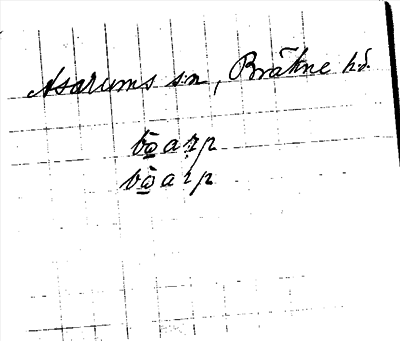 Asarums sn, Bräkne hd.
bò̲arp
bò̲arp